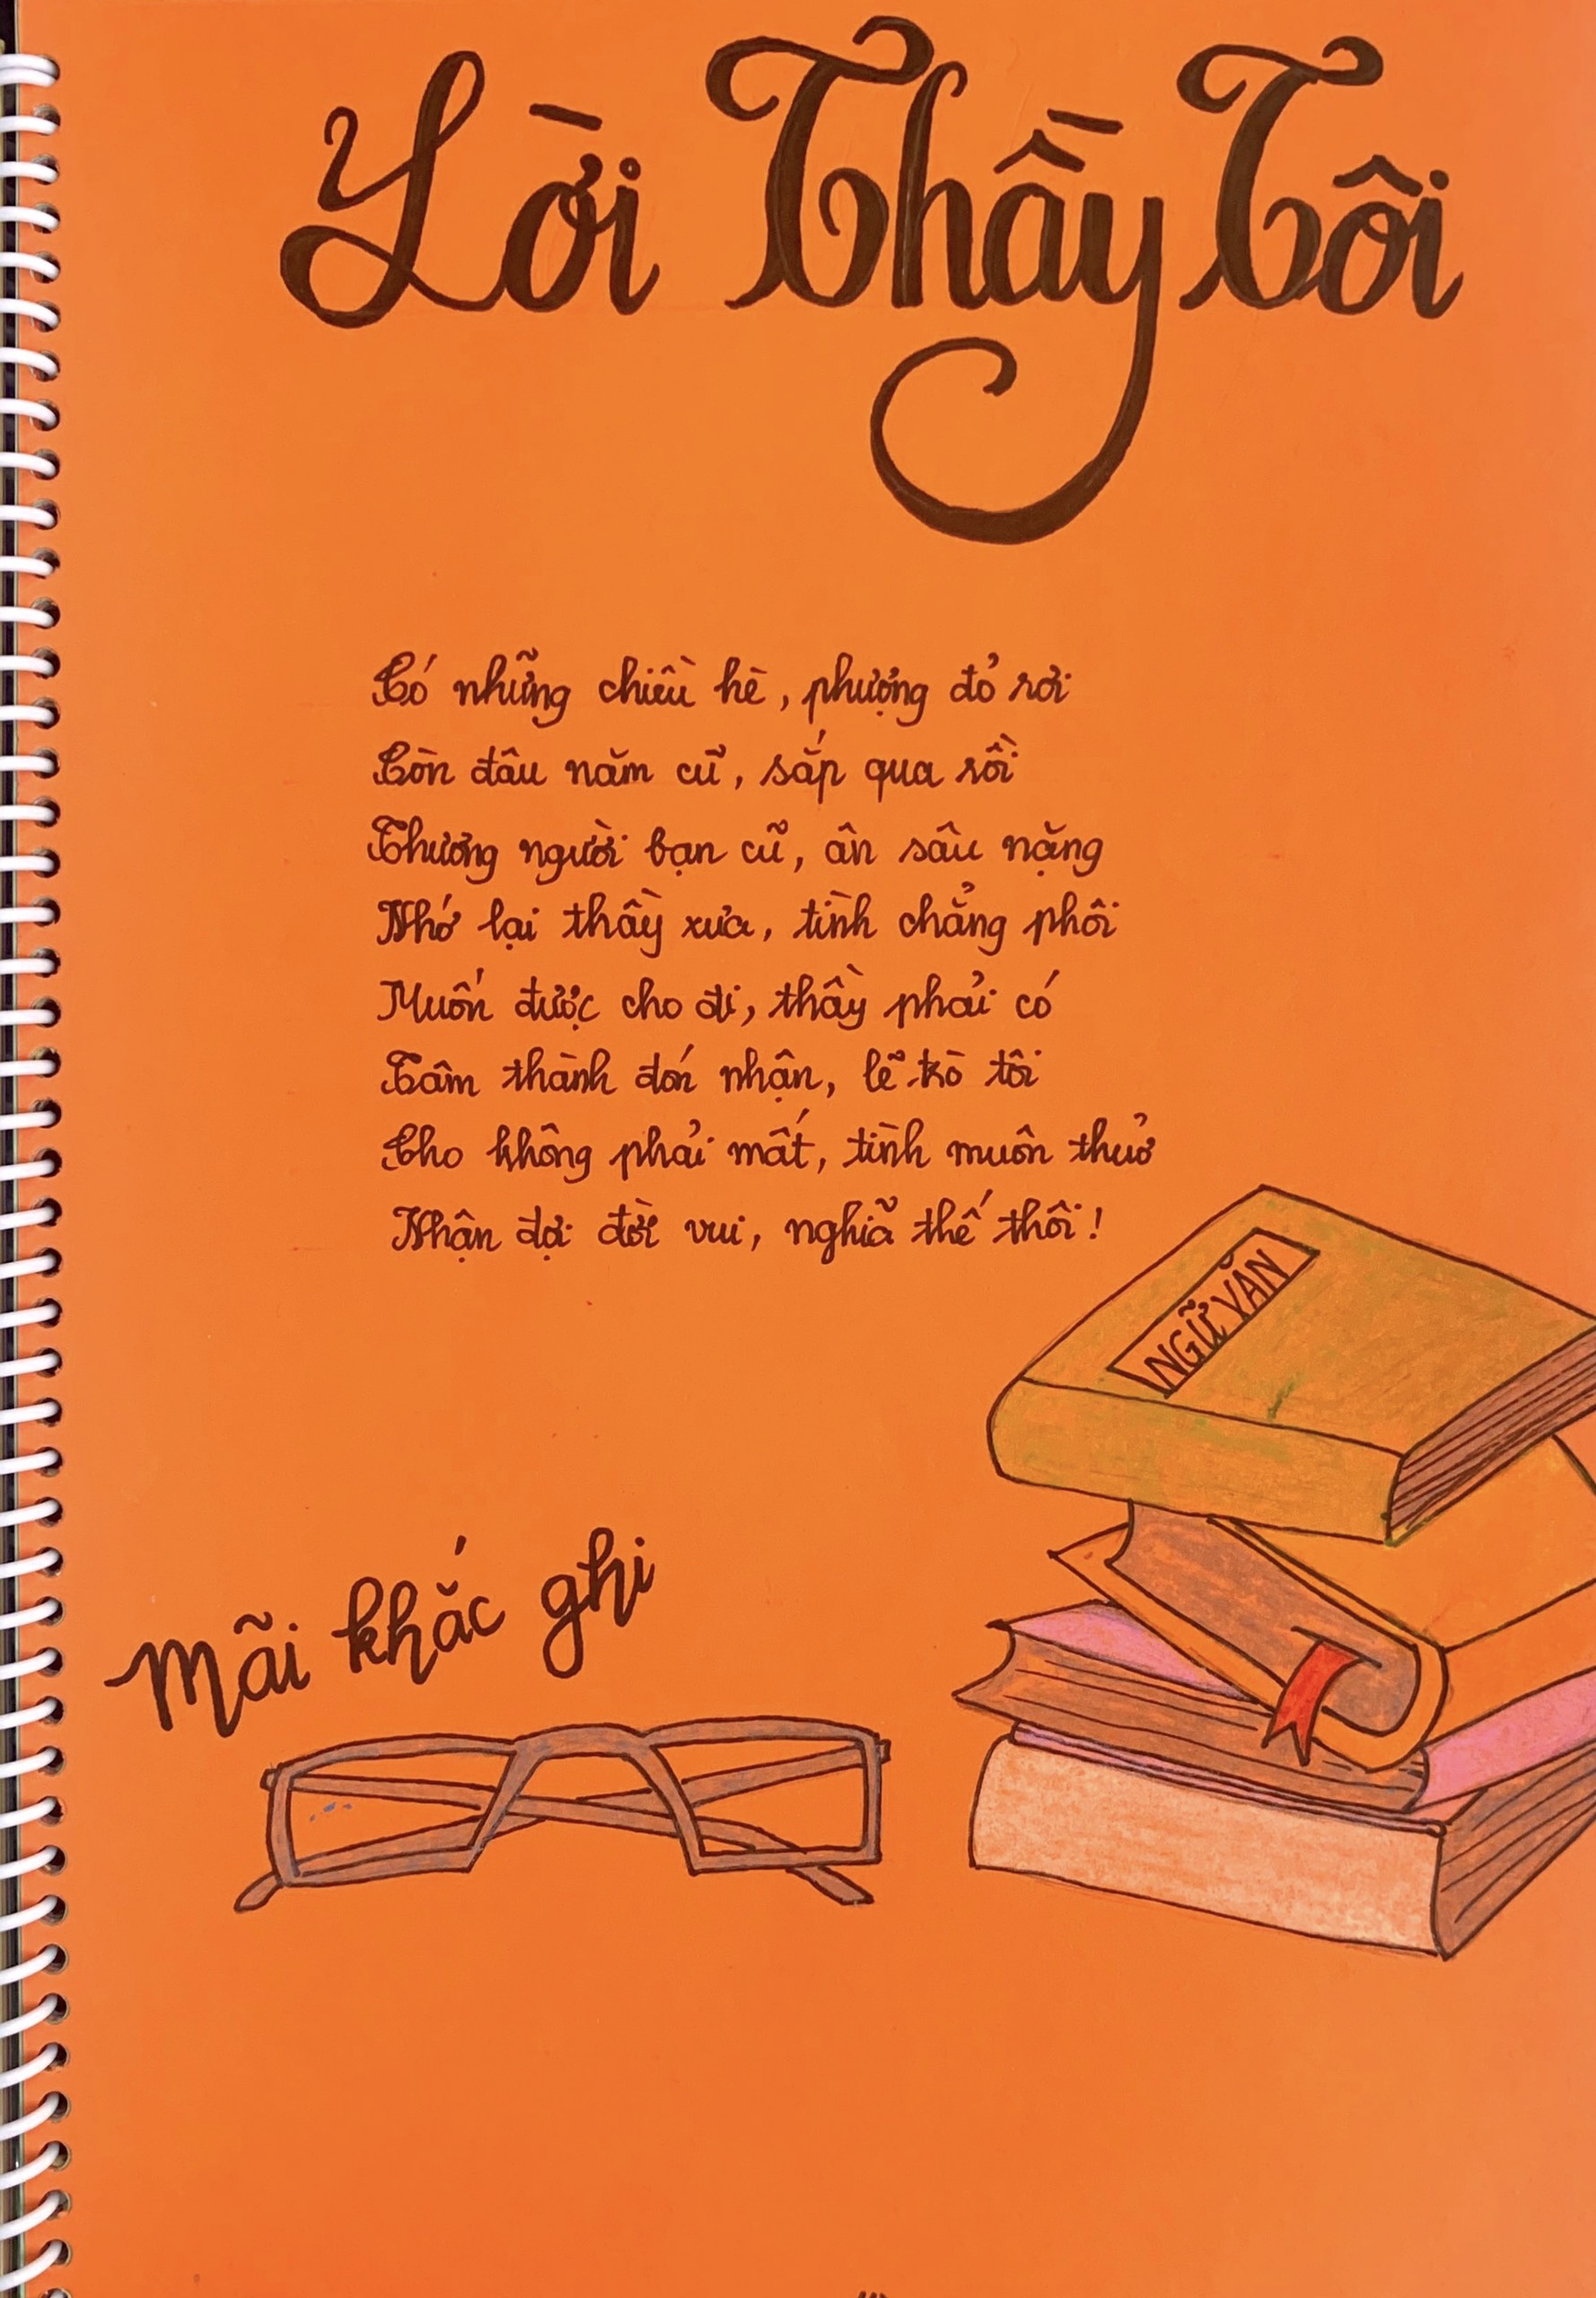 Lời Thầy Tôi
Có những chiều hè, phượng đỏ rơi
Còn đâu năm cũ, sắp qua rồi
Thương người bạn cũ, ân sâu nặng
Nhớ lại thầy xưa, tình chẳng phôi
Muốn được cho đi, thầy phải có
Tâm thành đón nhận, lẽ trò tôi
Cho không phải mất, tình muôn thuở
Nhận đợi đời vui, nghĩa thế thôi!
NGỮ VĂN
Mãi khắc ghi